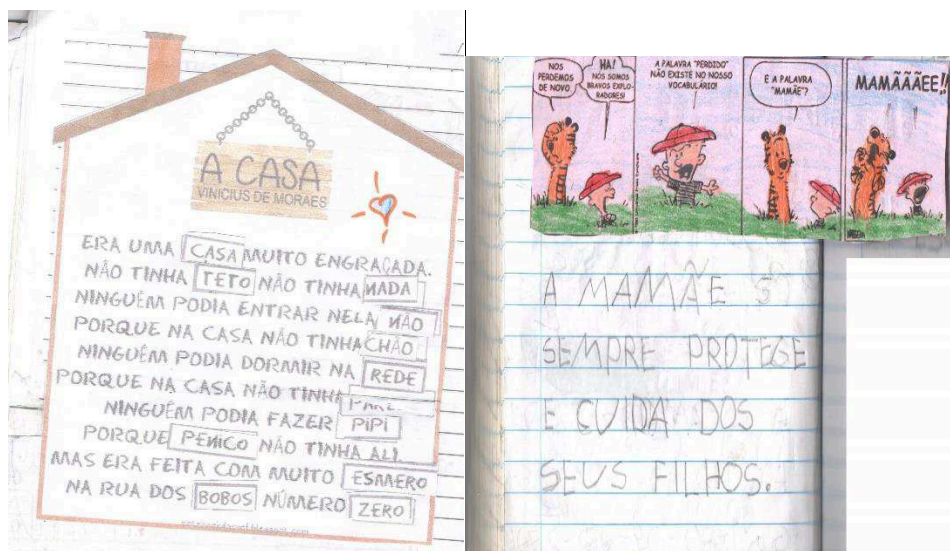 A CASA
VINICIUS DE MORAES
ERA UMA CASA MUITO ENGRAÇADA.
NÃO TINHA TETO NÃO TINHA NADA
NINGUÉM PODIA ENTRAR NELA NÃO
PORQUE NA CASA NÃO TINHA CHÃO
NINGUÉM PODIA DORMIR NA REDE
PORQUE NA CASA NÃO TINHA
NINGUÉM PODIA FAZER PIPI
PORQUE PENICO NÃO TINHA ALI.
MAS ERA FEITA COM MUITO ESMERO
NA RUA DOS BOBOS NÚMERO ZERO
NOS
PERDEMOS
DE NOVO
HA!
NÓS SOMOS
BRAVOS EXPLO-
RADORES!
A PALAVRA "PERDIDO"
NÃO EXISTE NO NOSSO
VOCABULÁRIO!
E A PALAVRA
"MAMÃE"?
MAMÃÃÃEE!!
A MAMÃE
SEMPRE PROTEGE
E CUIDA DOS
SEUS FILHOS.